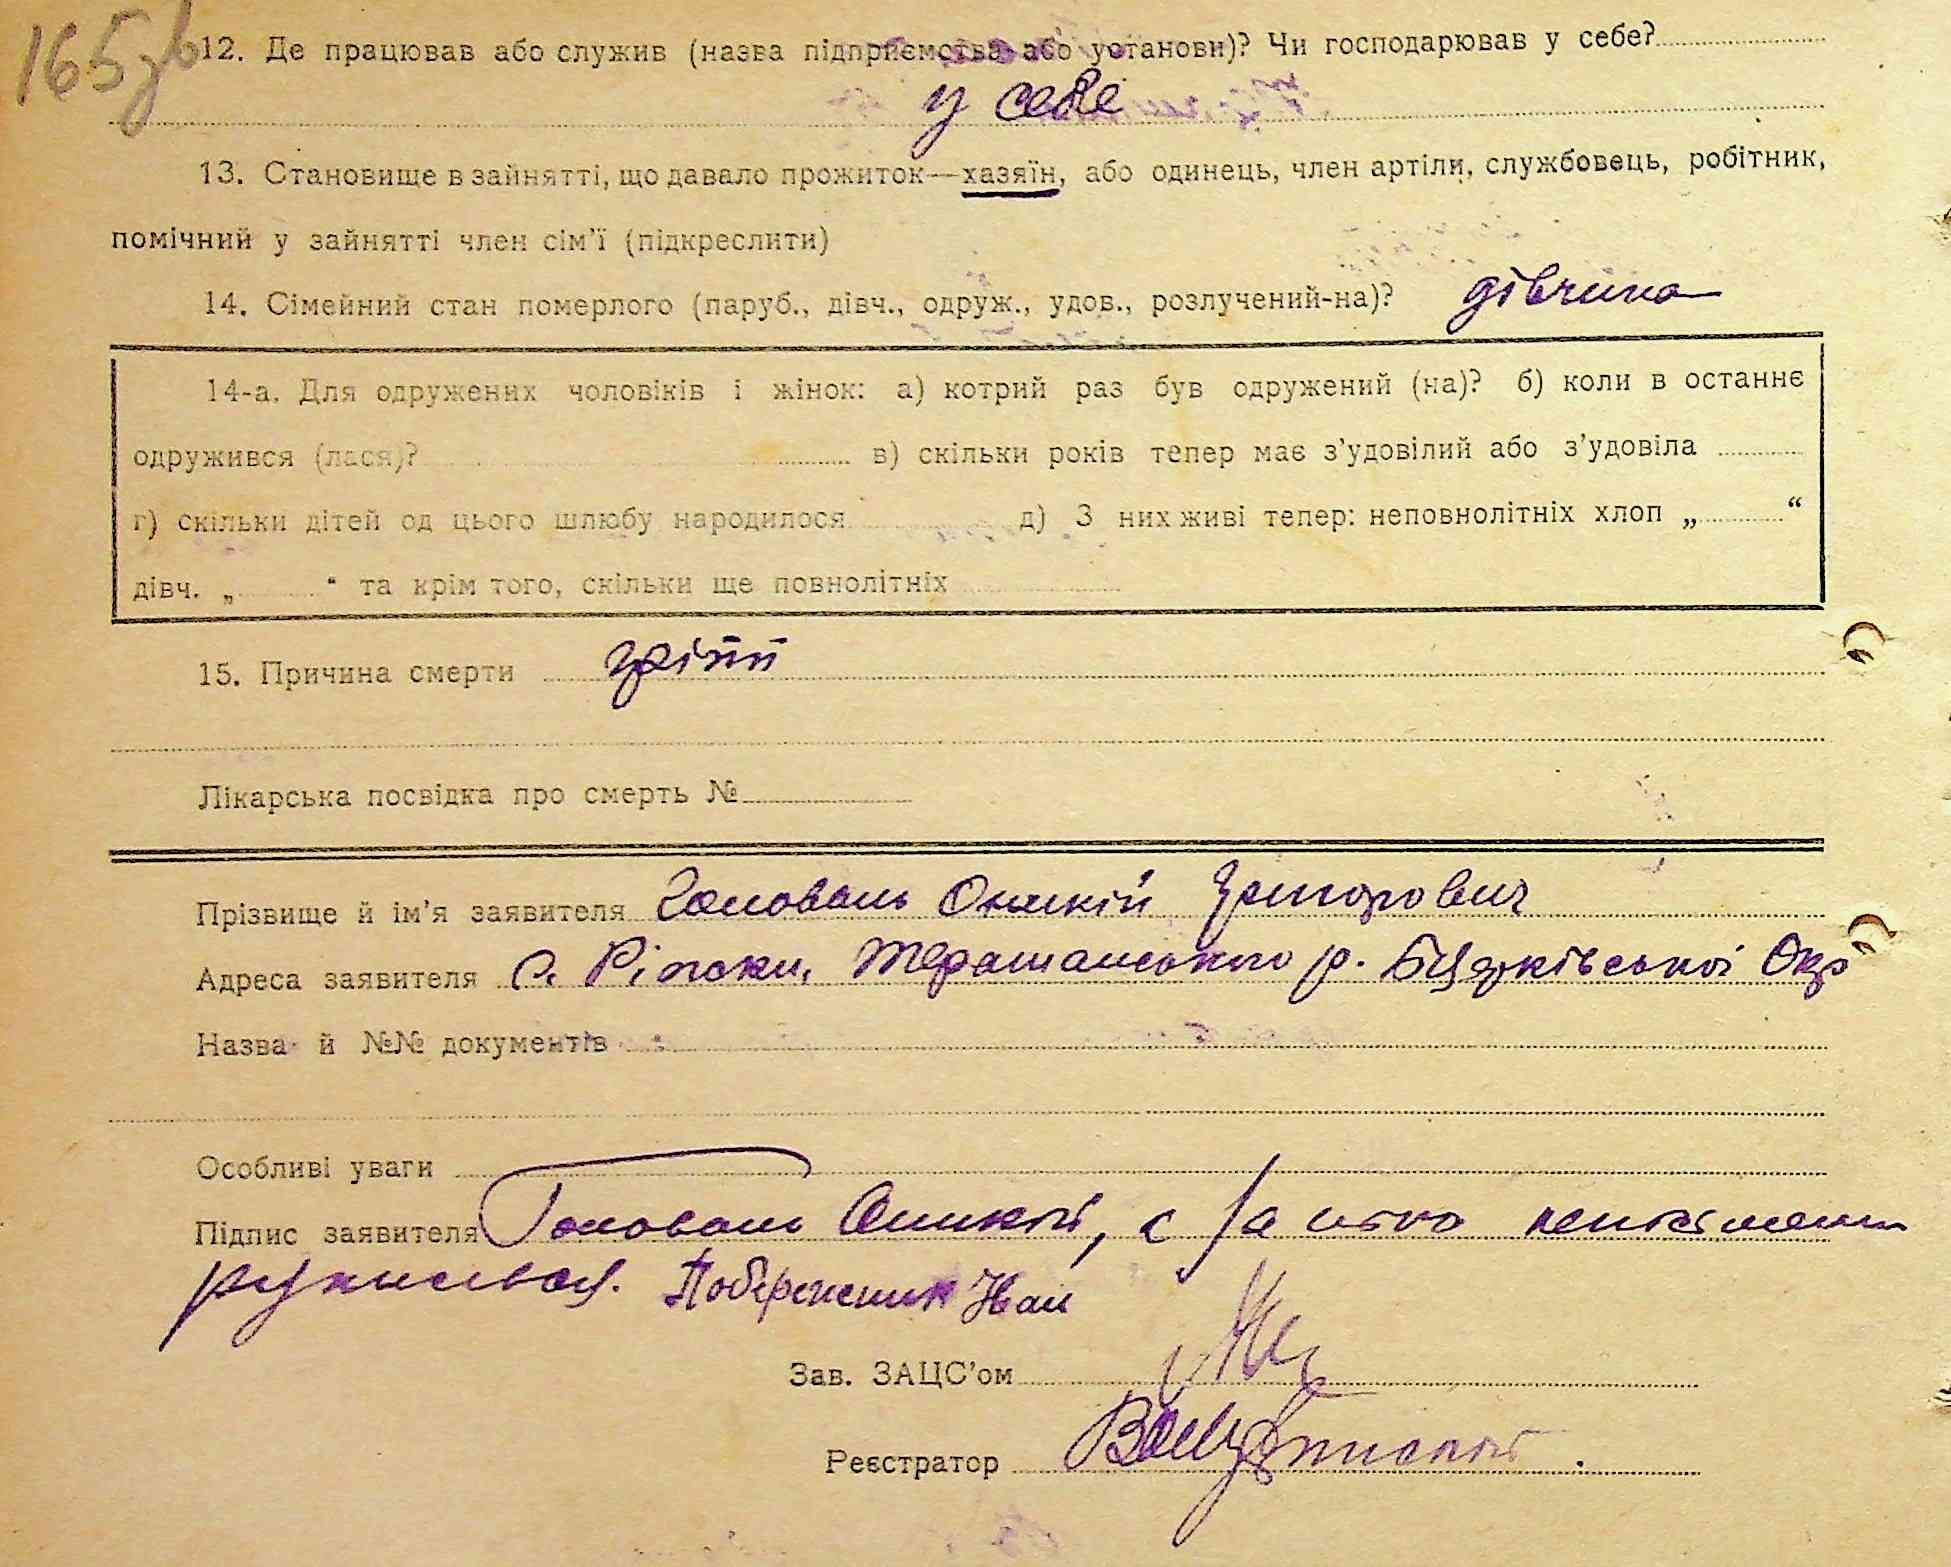 165 зв
12. Де працював або служив (назва підприємства або установи)? Чи господарював у себе?
у себе
13. Становище в зайнятті, що давало прожиток—хазяїн, або одинець, член артіли, службовець, робітник,
помічний у зайнятті член сім'ї (підкреслити)
14. Сімейний стан померлого (паруб., дівч., одруж., удов., розлучений-на)? дівчина
14-а. Для одружених чоловіків і жінок: а) котрий раз був одружений (на)? б) коли в останнє
одружився (лася)? в) скільки років тепер має з'удовілий або з'удовіла
г) скільки дітей од цього шлюбу народилося д) З них живі тепер: неповнолітніх хлоп „ “
дівч. „ “ та крім того, скільки ще повнолітніх
15. Причина смерти грипп
Лікарська посвідка про смерть №
Прізвище й ім'я заявителя Головань Григорович
Адреса заявителя с. Ріпки, Тараща́нського р. БЦерківської Окр
Назва й №№ документів
Особливі уваги
Підпис заявителя Головань а за його неписьменн
рукпісався. Побережник Іван
Зав. ЗАЦС'ом
Реєстратор